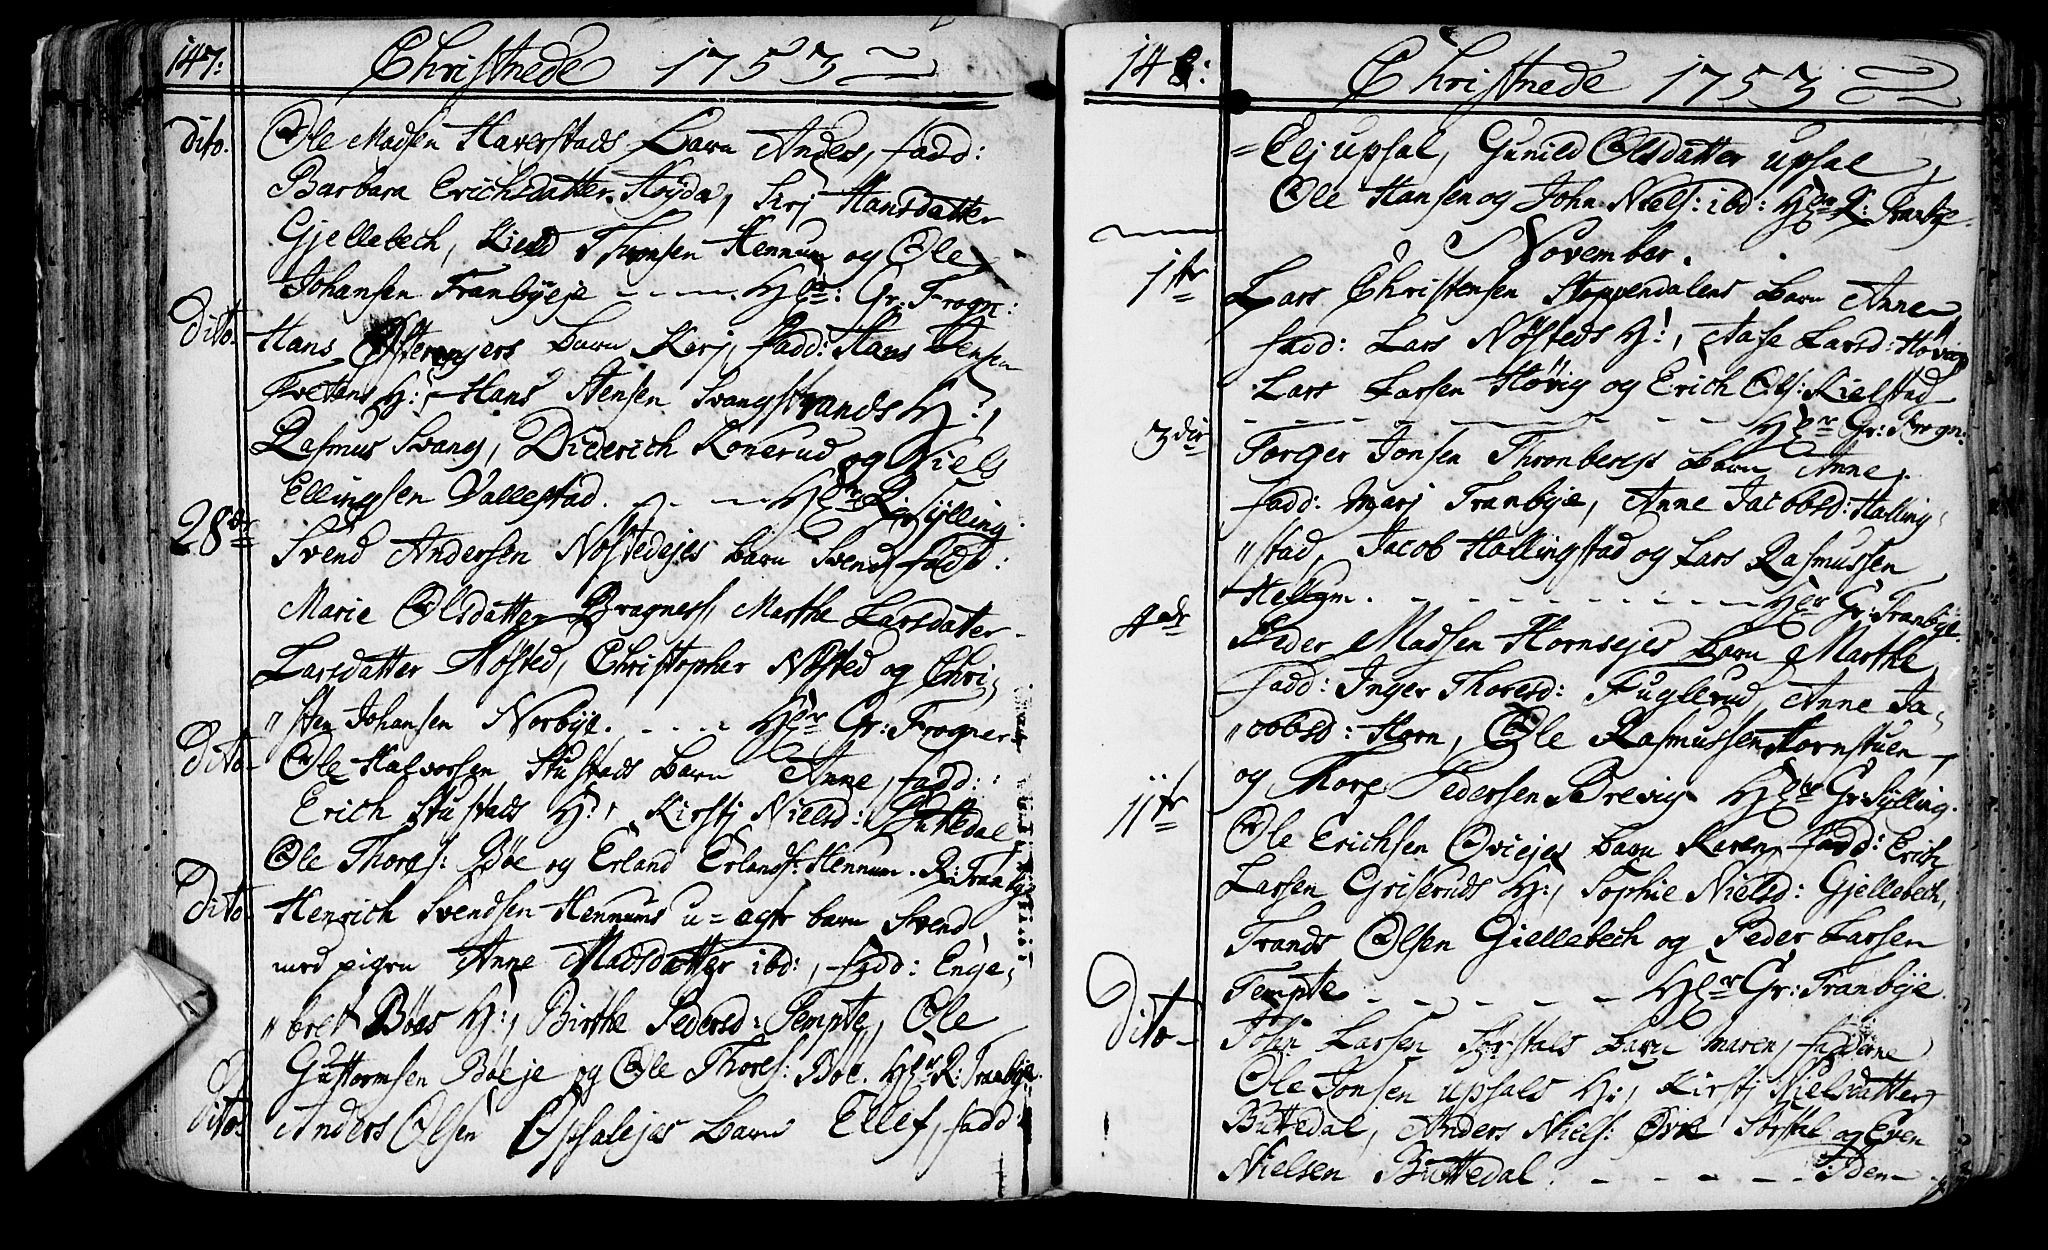 147:
Christnede 1753
dito. Ole Madsen Haverstads Barn Anders, fadd:
Barbara Erichsdatter Høyda, Sirj Hansdatter
Gjellebech, Kield Thronsen Hennum og Ole
Johansen Tranbyeje - - - . Hr: Gr: Frogn:
dito- Hans Østerengers Barn Karj, fadd: Hans Jensen
Tvetens H:, Hans Jensen Svangstrands H:,
Rasmus Svang, Diderich Konerud og Niels
Ellingsen Vallestad. - - - Hr R: Sylling.
28de Svend Andersen Nøstedejes Barn Svend fadd:
Marie Olsdatter Bragness, Marthe Larsdater
Larsdatter Nøsted, Christopher Nøsted og Chri„
„sten Johansen Norbye. - - - Hr Gr: Frogner
dito- Ole Halvorsen Stustads Barn Anne, fadd:
Erich Stustads H:, Kirstj Nielsd: Buttedal
Ole Thores: Bøe og Erland Erlands: Hennum. R: Tranbye
dito- Henrich Svendsen Hennums u=egte barn Svend
med pigen Anne Madsdatter ibd:, fadd: Enge„
„bret Bøes H:, Birthe Pedersd: Tempte, Ole
Guttormsen Bøeje og Ole Thores: Bøe. Hr R: Tranbye.
dito- Anders Olsen Opsalejes Barn Ellef, fadd:
148:
Christnede 1753
=Elj upsal, Gunild Olsdatter upsal
Ole Hansen og John Niels: ibd: Hr R: Tranbye.
November.
1ste Lars Christensen Stoppendalens Barn Anne
fadd: Lars Nøsteds H:, Aase Larsd: Høvig
Lars Larsen Høvig og Erich Ols: Kielstad
- - - - - - - - Hr Gr: Frogn:
3die Torger Jonsen Thronbergs Barn Anne.
fadd: Marj Tranbye, Anne Jacobsd: Halling„
„stad, Jacob Hallingstad og Lars Rasmussen
Hellgm. - - - - - - - - Hr Gr: Tranbye.
4de Peder Madsen Hornsejes Barn Marthe
fadd: Inger Thoresd: Fuglerud, Anne Ja„
„cobsd: Horn, Ole Rasmussen Hornstuen
og Thore Pedersen Brevig Hr Gr: Sylling.
11te Ole Erichsen Oviejes Barn Karen fadd: Erich
Larsen Griseruds H:, Sophie Nielsd: Gjellebech,
Trands Olsen Giellebech og Peder Larsen
Tempte - - - - - Hr Gr: Tranbye.
dito- John Larsen Sørstals Barn Maren, fadderne
Ole Jonsen upsals H:, Kirstj Nielsdatter
Buttedal, Anders Niels: Øvre Sørstal og Even
Nielsen Buttedal. - - - - - Idem